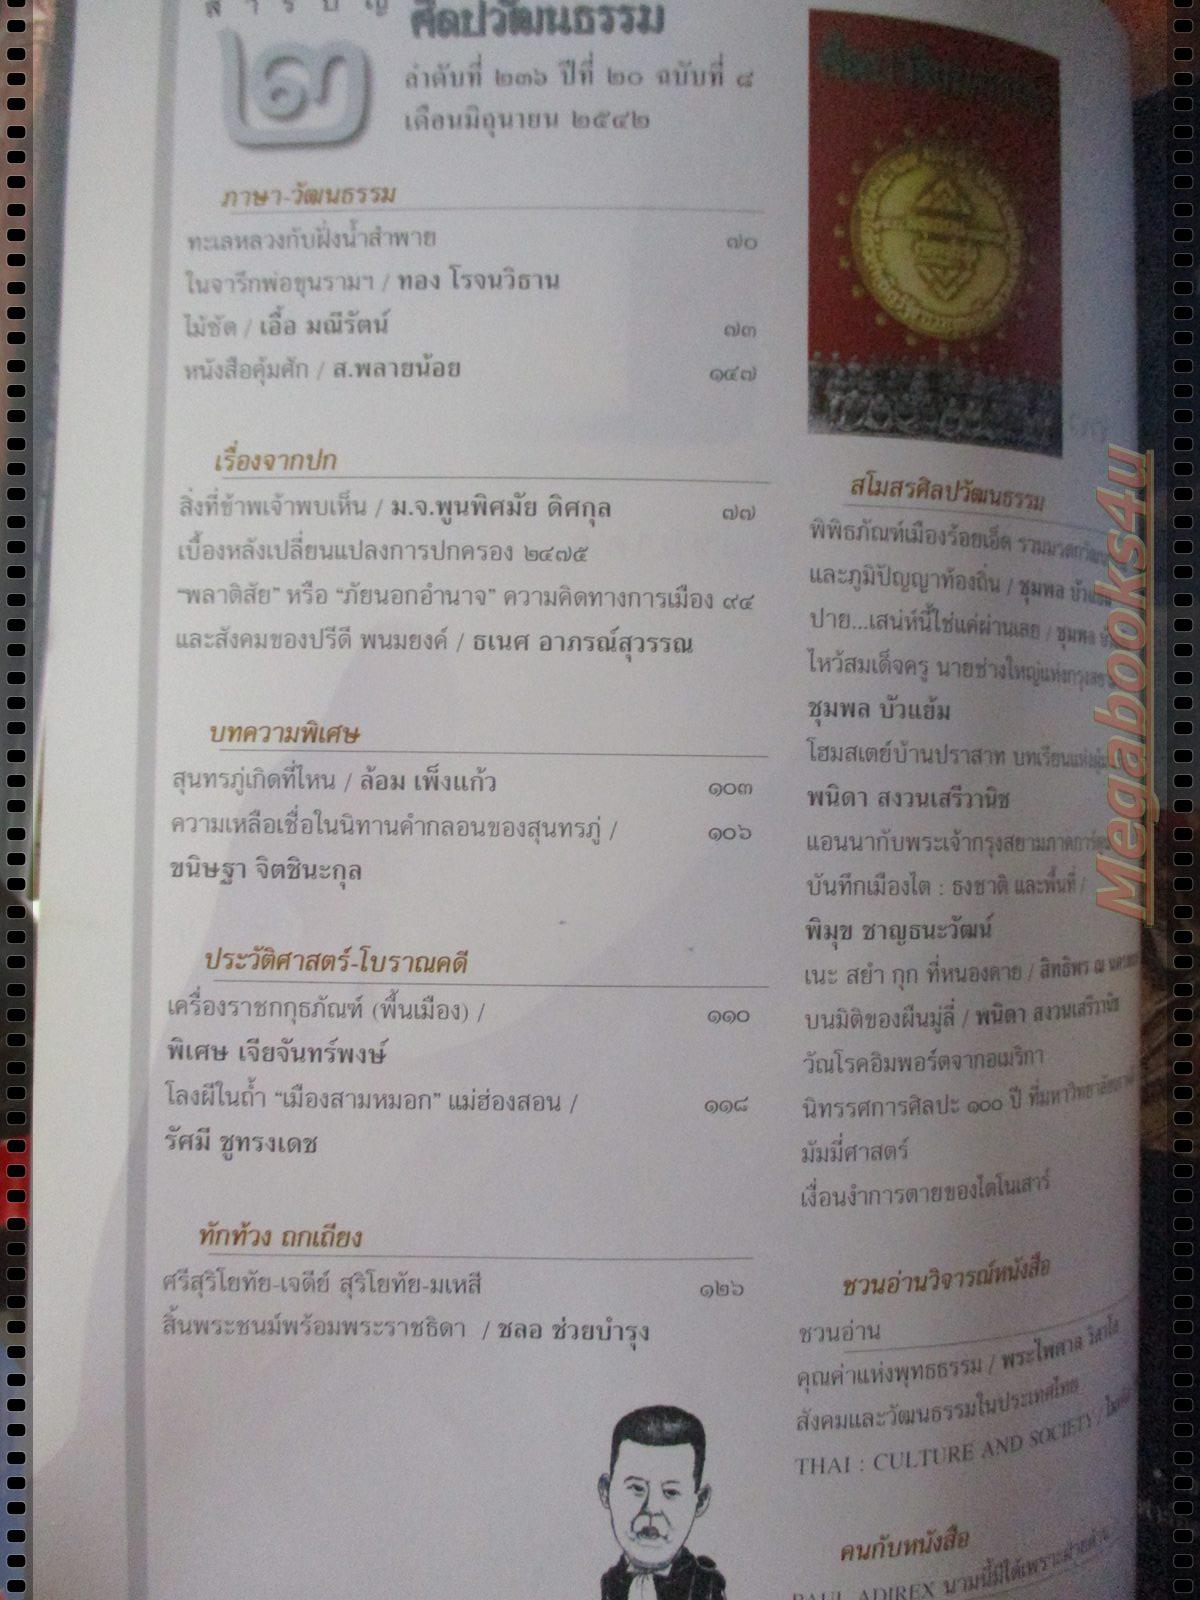 สารบัญ
ศิลปวัฒนธรรม
๒๓
ลำดับที่ ๒๓๖ ปีที่ ๒๐ ฉบับที่ ๘
เดือนมิถุนายน ๒๕๔๒
ภาษา-วัฒนธรรม
ทะเลหลวงกับฝั่งน้ำสำพาย ๗๐
ในจารึกพ่อขุนรามฯ / ทอง โรจนวิธาน
ไม้ซัด / เอื้อ มณีรัตน์ ๗๓
หนังสือคุ้มศัก / ส.พลายน้อย ๑๔๗
เรื่องจากปก
สิ่งที่ข้าพเจ้าพบเห็น / ม.จ.พูนพิศมัย ดิศกุล ๗๗
เบื้องหลังเปลี่ยนแปลงการปกครอง ๒๔๗๕
“พลาติสัย” หรือ “ภัยนอกอำนาจ” ความคิดทางการเมือง ๙๔
และสังคมของปรีดี พนมยงค์ / ธเนศ อาภรณ์สุวรรณ
บทความพิเศษ
สุนทรภู่เกิดที่ไหน / ล้อม เพ็งแก้ว ๑๐๓
ความเหลือเชื่อในนิทานคำกลอนของสุนทรภู่ / ๑๐๖
ขนิษฐา จิตชินะกุล
ประวัติศาสตร์-โบราณคดี
เครื่องราชกกุธภัณฑ์ (พื้นเมือง) / ๑๑๐
พิเศษ เจียจันทร์พงษ์
โลงผีในถ้ำ “เมืองสามหมอก” แม่ฮ่องสอน / ๑๑๘
รัศมี ชูทรงเดช
ทักท้วง ถกเถียง
ศรีสุริโยทัย-เจดีย์ สุริโยทัย-มเหสี ๑๒๖
สิ้นพระชนม์พร้อมพระราชธิดา / ชลอ ช่วยบำรุง
สโมสรศิลปวัฒนธรรม
พิพิธภัณฑ์เมืองร้อยเอ็ด
และภูมิปัญญาท้องถิ่น / ชุมพล บัวแย้ม
ปาย...เสน่ห์นี้ใช่แค่ผ่านเลย / ชุมพล
ไหว้สมเด็จครู นายช่างใหญ่แห่งกรุง
ชุมพล บัวแย้ม
โฮมสเตย์บ้านปราสาท บทเรียนแห่ง
พนิดา สงวนเสรีวานิช
แอนนากับพระเจ้ากรุงสยามภาคการ์ตูน
บันทึกเมืองไต : ธงชาติ และพื้นที่ /
พิมุข ชาญธนะวัฒน์
เนะ สยำ กุก ที่หนองคาย / สิทธิพร ณ
บนมิติของผืนมู่ลี่ / พนิดา สงวนเสรีวานิช
วัณโรคอิมพอร์ตจากอเมริกา
นิทรรศการศิลปะ ๑๐๐ ปี ที่มหาวิทยาลัย
มัมมี่ศาสตร์
เงื่อนงำการตายของไดโนเสาร์
ชวนอ่านวิจารณ์หนังสือ
ชวนอ่าน
คุณค่าแห่งพุทธธรรม / พระไพศาล วิสาโล
สังคมและวัฒนธรรมในประเทศไทย
THAI : CULTURE AND SOCIETY /
คนกับหนังสือ
PAUL ADIREX นามนี้มีได้เพราะ
Megabooks4u